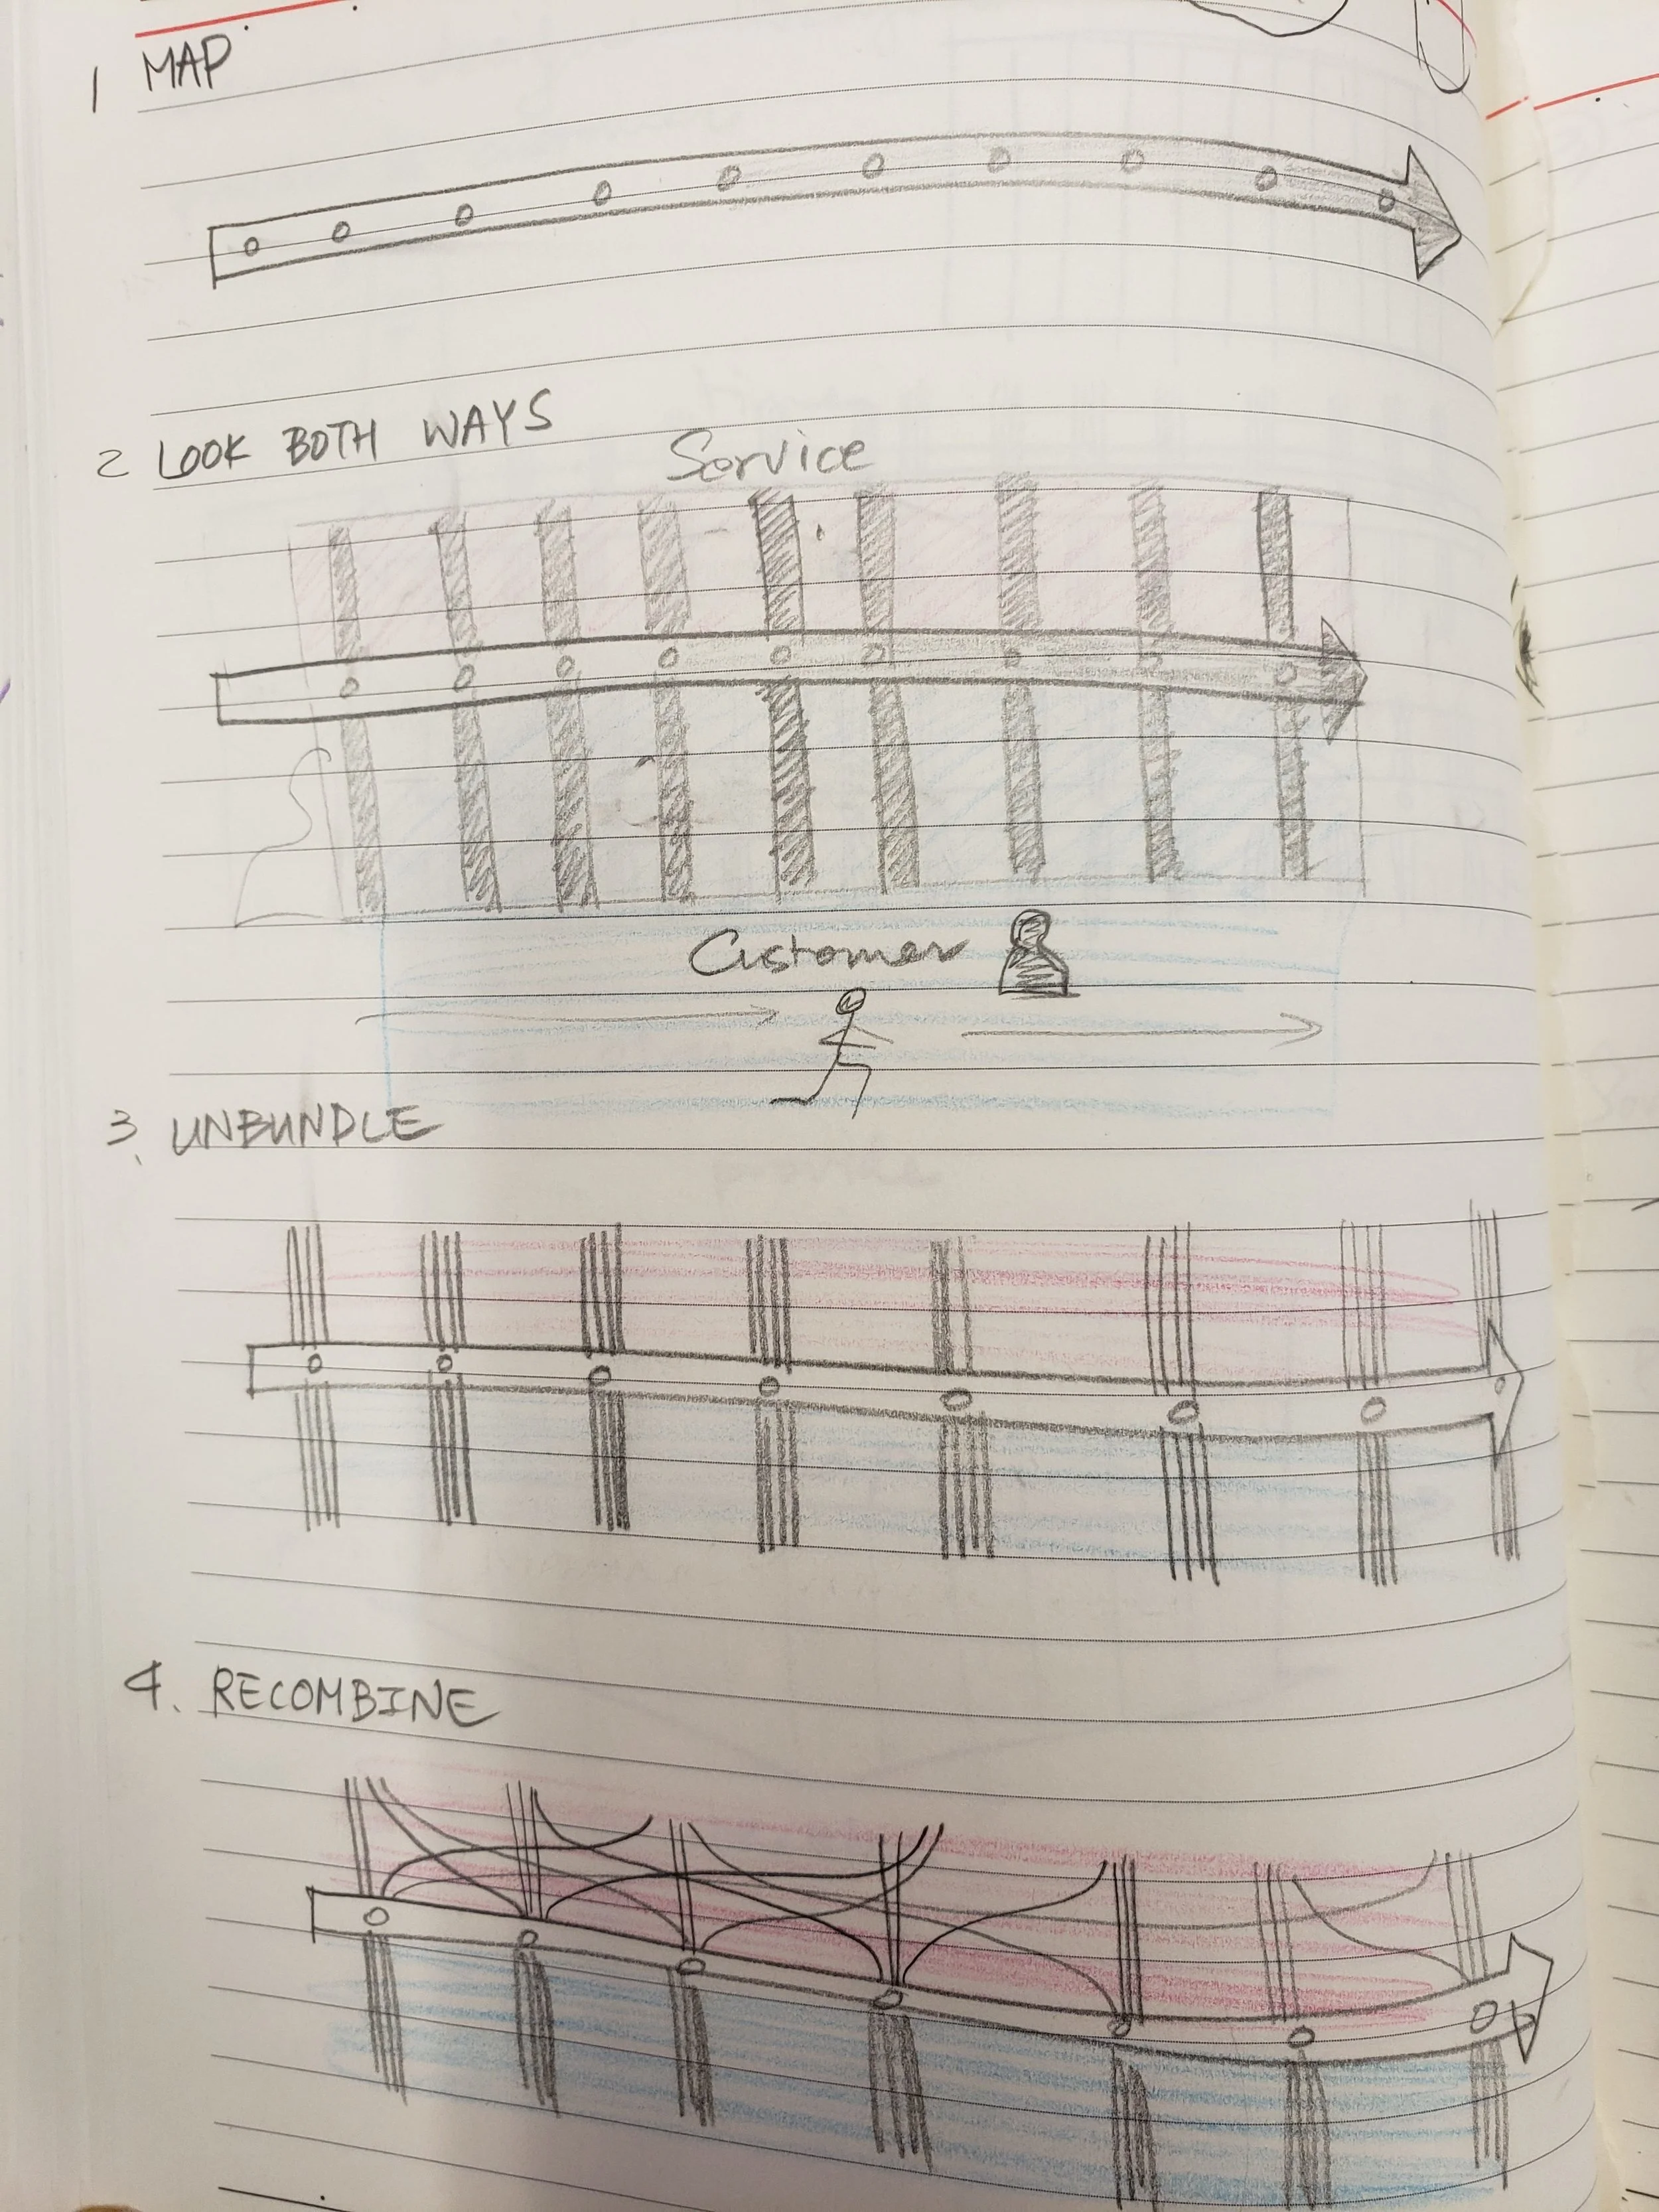 1 MAP
2 LOOK BOTH WAYS
Service
Customer
3. UNBUNDLE
4. RECOMBINE